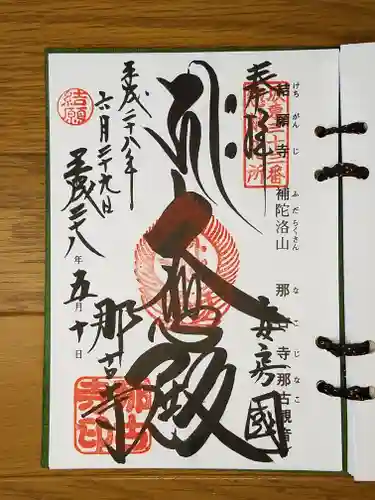 奉拝
坂東三十三番
札所
結願寺 補陀洛山 那古寺 那古観音
けちがんじ ふだらくさん なこじ なこ
安房國
大悲殿
平成二十八年
六月二十九日
結願
平成二十八年五月十日
那古寺
那古寺印